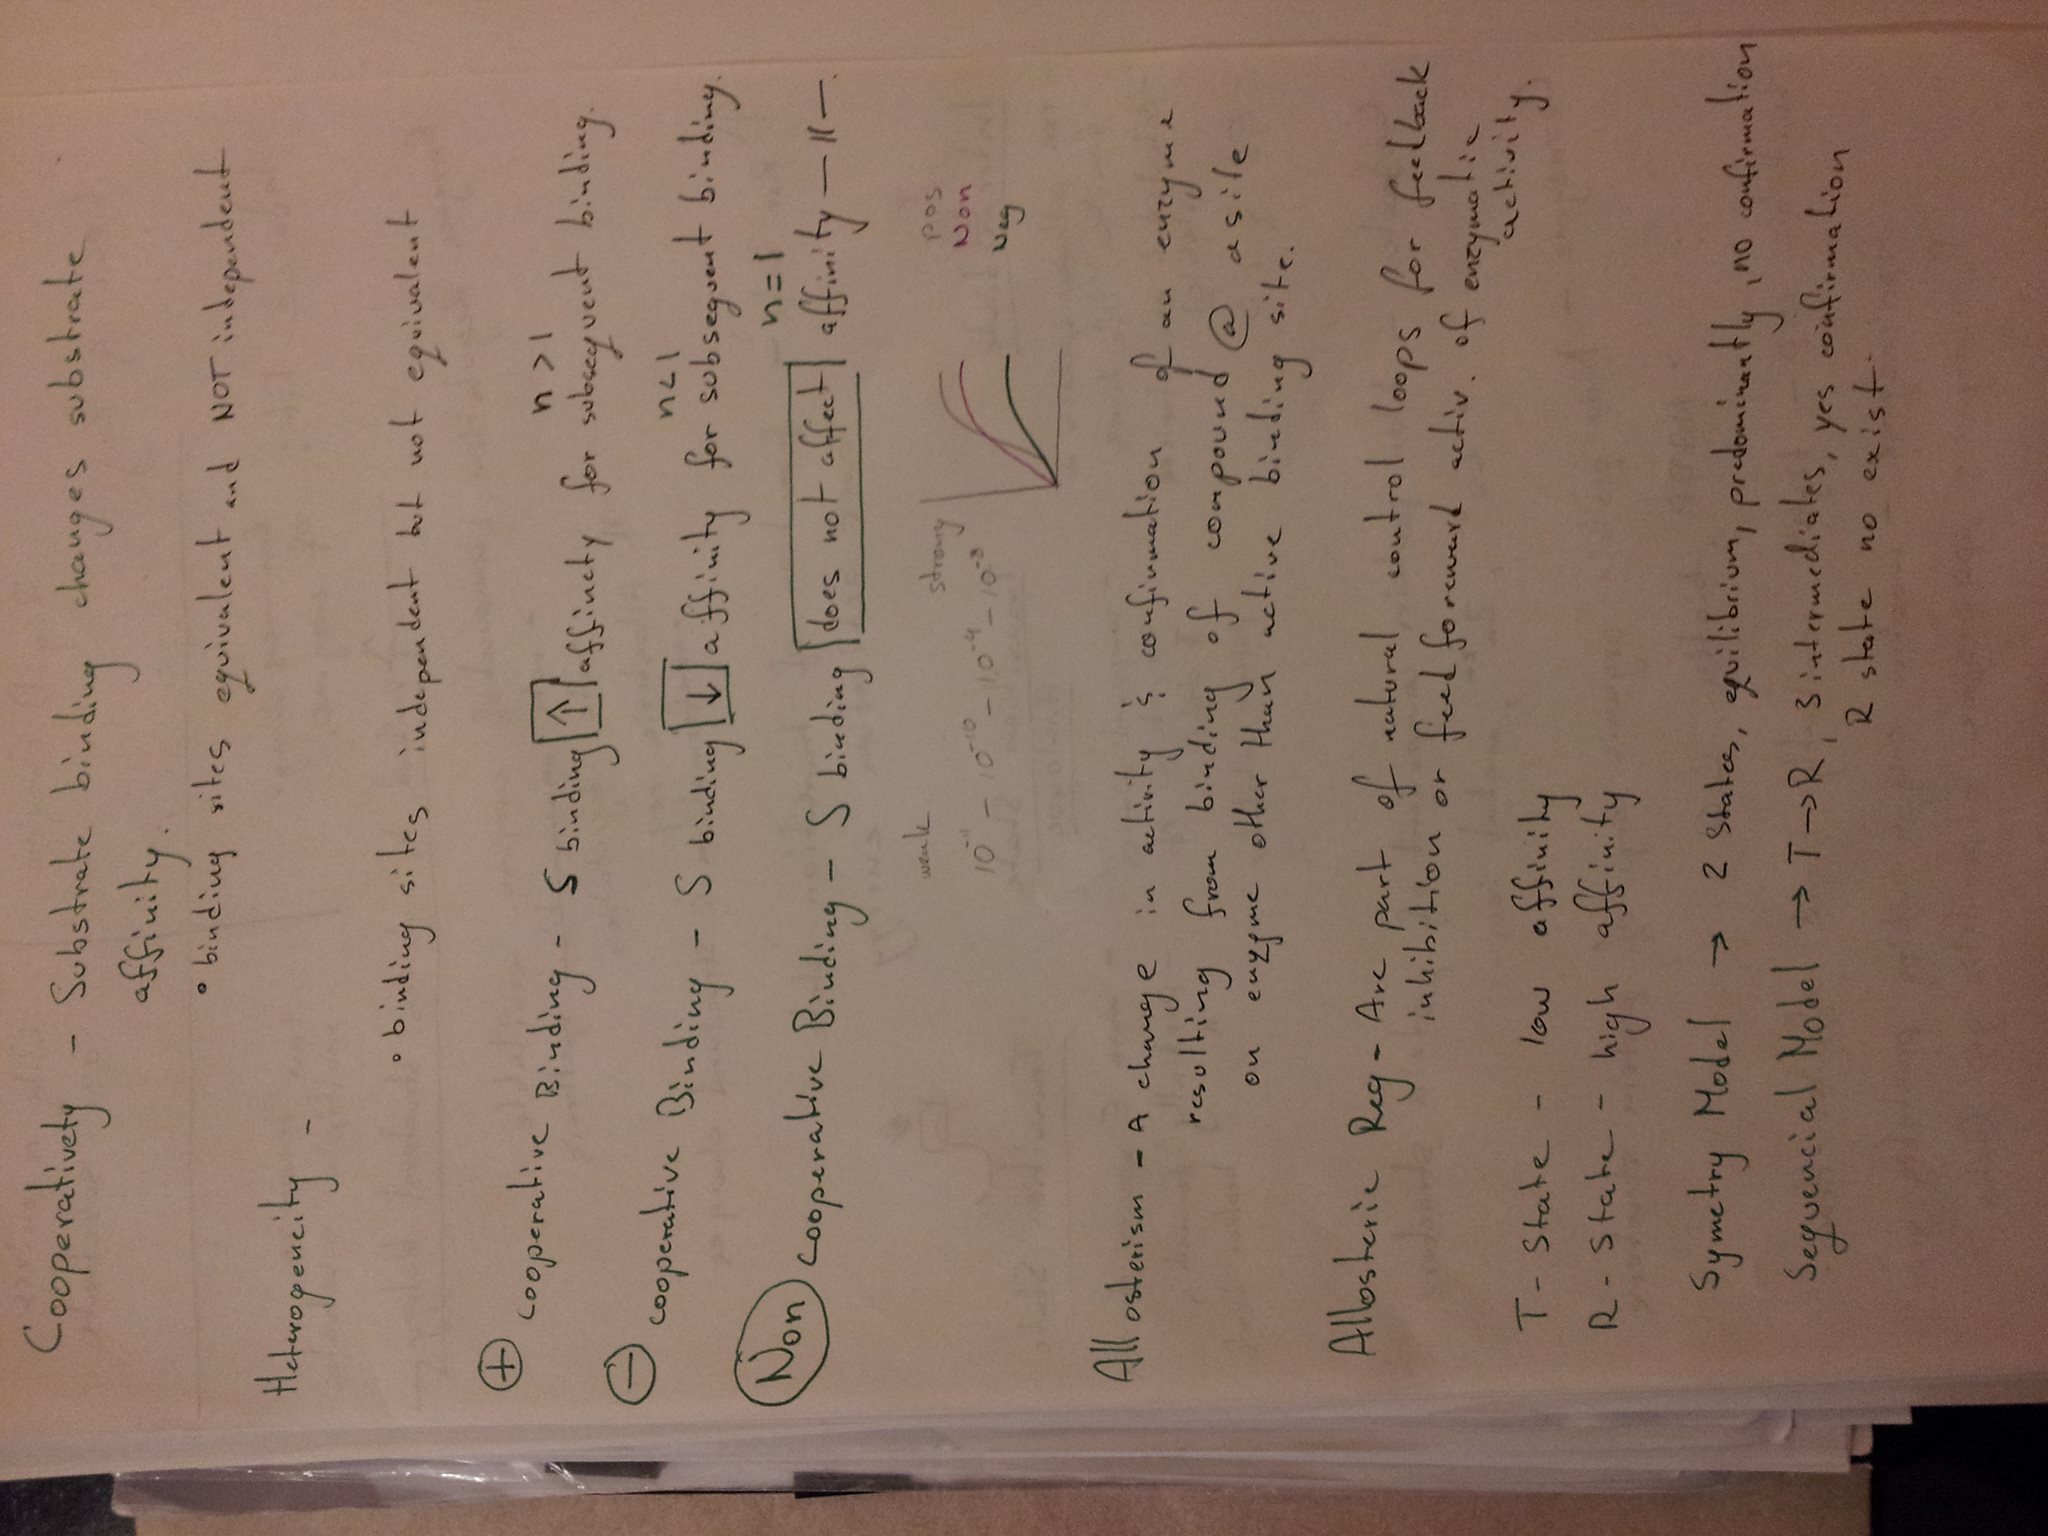 Cooperativety - Substrate binding changes substrate
affinity.
• binding sites equivalent and NOT independent
Heterogeneity -
• binding sites independent but not equivalent
n > 1
⊕ cooperative Binding - S binding ↑ affinety for subsequent binding.
n < 1
⊖ cooperative Binding - S binding ↓ affinity for subsequent binding.
n = 1
Non cooperative Binding - S binding does not affect affinity — 11 —.
pos
Non
Neg
weak strong
10⁻¹¹ - 10⁻¹⁰ - 10⁻⁹ - 10⁻⁸
Allosterism - A change in activity & confirmation of an enzyme
resulting from binding of compound @ a site
on enzyme other than active binding site.
Allosteric Reg - Are part of natural control loops for feedback
inhibition or feedforeward activ. of enzymatic
activity.
T - State - low affinity
R - State - high affinity
Symetry Model → 2 States, equilibrium, predominantly, no confirmation
Sequencial Model → T→R, 3 intermediates, yes confirmation
R state no exist.